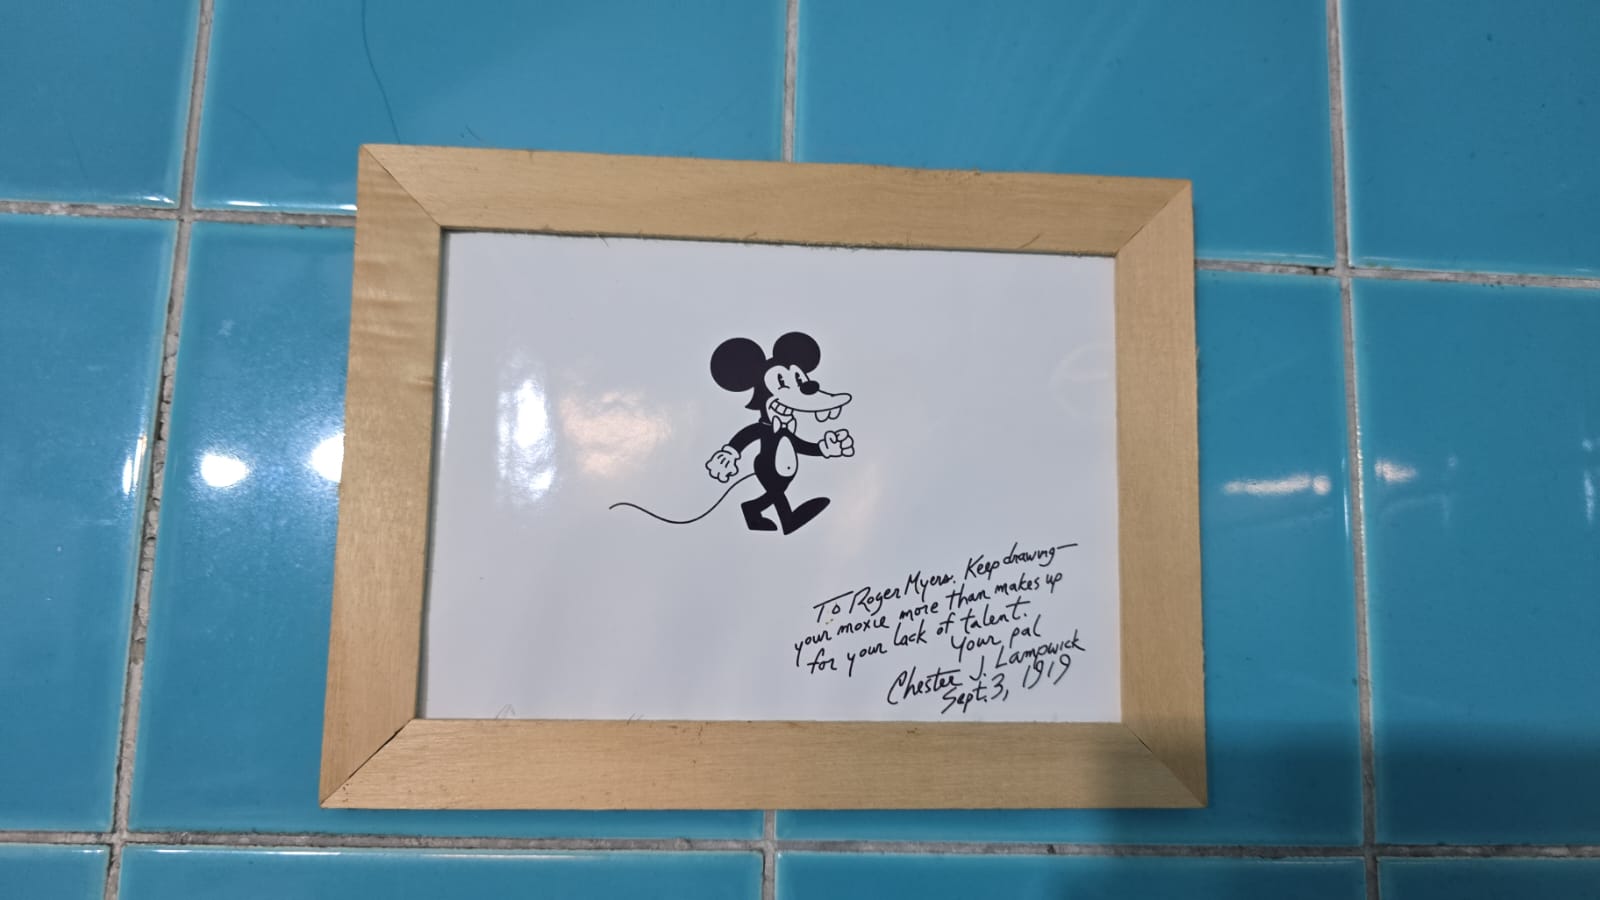 To Roger Myers. Keep drawing—
your moxie more than makes up
for your lack of talent.
Your pal
Chester J. Lampwick
Sept. 3, 1919